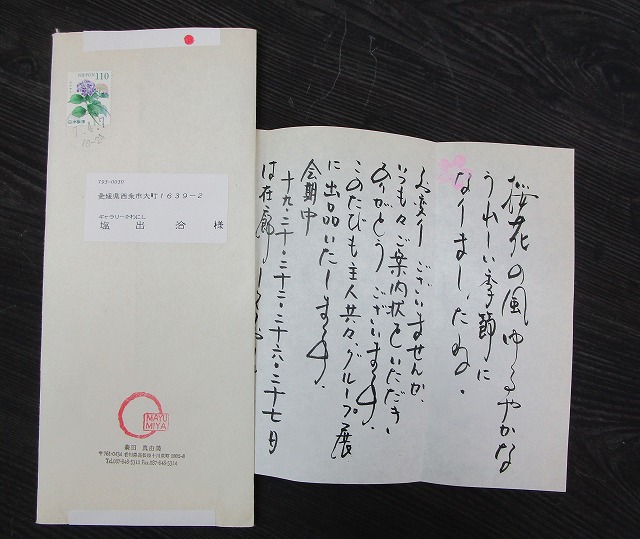 NIPPON 110
日本郵便
793-0030
愛媛県西条市大町1639-2
ギャラリーかわにし
塩出 治 様
MAYU
MIYA
桜花の風ゆるやかな
うれしい季節に
なりましたね。
お変りございませんか。
いつも々ご案内状をいただき
ありがとうございます。
このたびも主人共々、グループ展
に出品いたします。
会期中
十九・二十・二十二・二十六・二十七日
は在廊